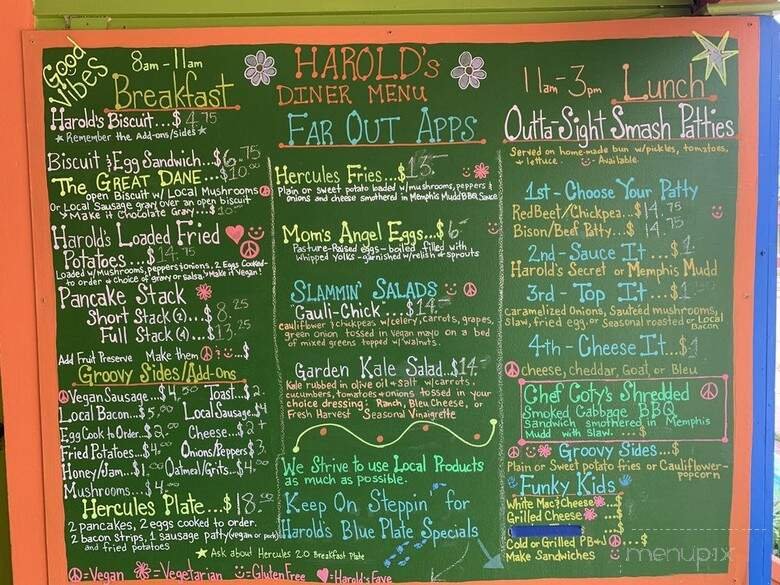 Good Vibes
8am-11am
Breakfast
Harold's Biscuit...$4.75
★Remember the Add-ons/sides★
Biscuit & Egg Sandwich...$6.75
The GREAT DANE...$10.00
open Biscuit w/ Local Mushrooms
Or Local Sausage gravy over an open biscuit
Make it Chocolate Gravy...$10.00
Harold's Loaded Fried
Potatoes...$14.75
Loaded w/mushrooms, peppers & onions, 2 Eggs Cooked-
to order & choice of gravy or salsa. Make it Vegan!
Pancake Stack
Short Stack (2)...$8.25
Full Stack (4)...$13.25
Add Fruit Preserve Make them ...$
Groovy Sides/Add-ons
Vegan Sausage...$4.50 Toast..$2.
Local Bacon...$5.00 Local Sausage.$4
Egg Cook to Order..$2.00 Cheese...$2+
Fried Potatoes..$4.00 Onions/Peppers$3.
Honey/Jam...$1.00 Oatmeal/Grits..$4.00
Mushrooms...$4.00
Hercules Plate...$18.00
2 pancakes, 2 eggs cooked to order.
2 bacon strips, 1 sausage patty (vegan or pork)
and fried potatoes
★Ask about Hercules 2.0 Breakfast Plate
=Vegan =Vegetarian =Gluten Free =Harold's Fave
HAROLD's
DINER MENU
FAR OUT APPS
Hercules Fries...$13.
Plain or sweet potato loaded w/mushrooms, peppers &
onions and cheese smothered in Memphis Mudd BBQ Sauce
Mom's Angel Eggs...$6.
Pasture-Raised eggs-boiled, filled with
whipped yolks-garnished w/relish & sprouts
SLAMMIN' SALADS
Cauli-Chick...$14.
cauliflower & chickpeas w/celery, carrots, grapes,
green onion tossed in vegan mayo on a bed
of mixed greens topped w/walnuts.
Garden Kale Salad..$14.
Kale rubbed in olive oil + salt w/carrots,
cucumbers, tomatoes + onions tossed in your
choice dressing: Ranch, Bleu Cheese, or
Fresh Harvest Seasonal Vinaigrette
We Strive to use Local Products
as much as possible.
Keep On Steppin' for
Harold's Blue Plate Specials
11am-3pm Lunch
Outta-Sight Smash Patties
Served on home-made bun w/pickles, tomatoes,
& lettuce. - Available
1st-Choose Your Patty
Red Beet/Chickpea...$14.75
Bison/Beef Patty...$14.75
2nd-Sauce It...$1
Harold's Secret or Memphis Mudd
3rd-Top It...$1
caramelized Onions, Sauteed mushrooms,
slaw, fried egg, or Seasonal roasted or Local
Bacon
4th-Cheese It...$1
cheese, cheddar, Goat, or Bleu
Chef Coty's Shredded
Smoked Cabbage BBQ
Sandwich smothered in Memphis
Mudd with slaw....$
Groovy Sides...$
Plain or Sweet potato fries or Cauliflower-
popcorn
Funky Kids
White Mac & Cheese ...$
Grilled Cheese ...$
Cold or Grilled PB+J ....$
Make Sandwiches ...$
menupix